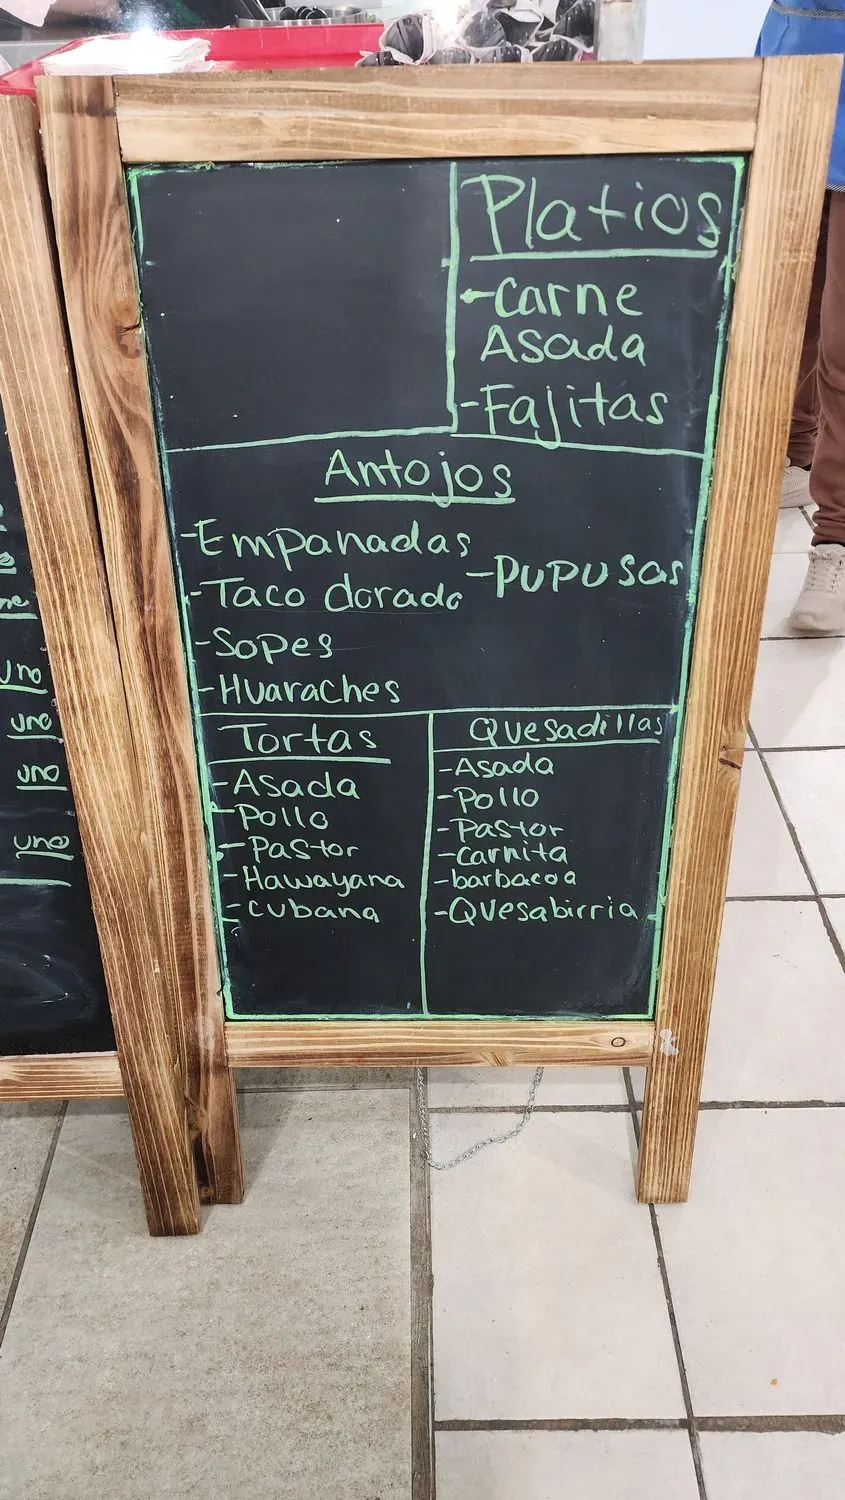 Platios
-Carne
Asada
-Fajitas
Antojos
-Empanadas
-Taco dorado
-Sopes
-Huaraches
-PUPUSas
Tortas
-Asada
-Pollo
-Pastor
-Hawayana
-cubana
Quesadillas
-Asada
-Pollo
-Pastor
-carnita
-barbacoa
-Quesabirria
uno
uno
uno
uno